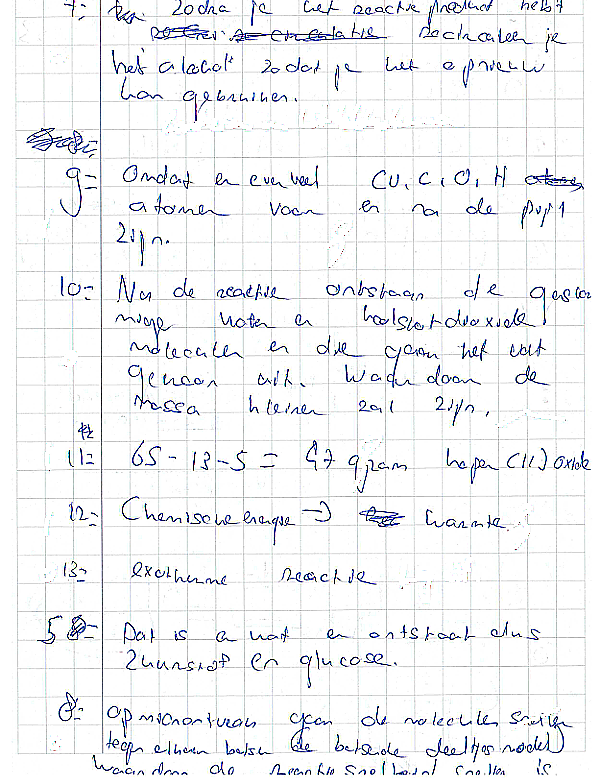 7: zodra je het reactie product hebt
je
het alcohol zodat je het opnieuw
kan gebruiken.
9= Omdat er evenveel Cu, C, O, H
atomen voor en na de pijl
zijn.
10= Na de reactie ontstaan de gasvor
mige water en koolstofdioxide
moleculen en die gaan het vat
uit. Waardoor de
massa kleiner zal zijn.
11= 65-13-5= 47 gram koper (II) oxide
12= Chemische energie → warmte.
13= exotherme reactie
5 = Dat is er wat er ontstaat dus
zuurstof en glucose.
8= op microniveau gaan de moleculen sneller
tegen elkaar botsen (de botsende deeltjes model)
waardoor de reactie snelheid sneller is